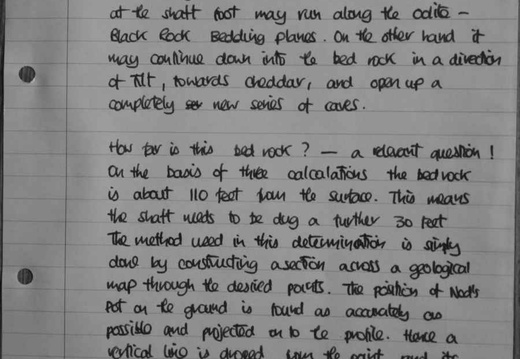 at the shaft foot may run along the oolite -
Black Rock Bedding planes. On the other hand it
may continue down into the bed rock in a direction
of Tilt, towards cheddar, and open up a
completely new series of caves.
How far is this bed rock? - a relevant question!
On the basis of three calculations the bedrock
is about 110 feet from the surface. This means
the shaft needs to be dug a further 30 feet
The method used in this determination is simply
done by constructing a section across a geological
map through the desired points. The position of Nod's
Pot on the ground is found as accurately as
possible and projected on to the profile. Hence a
vertical line is dropped from the point and its